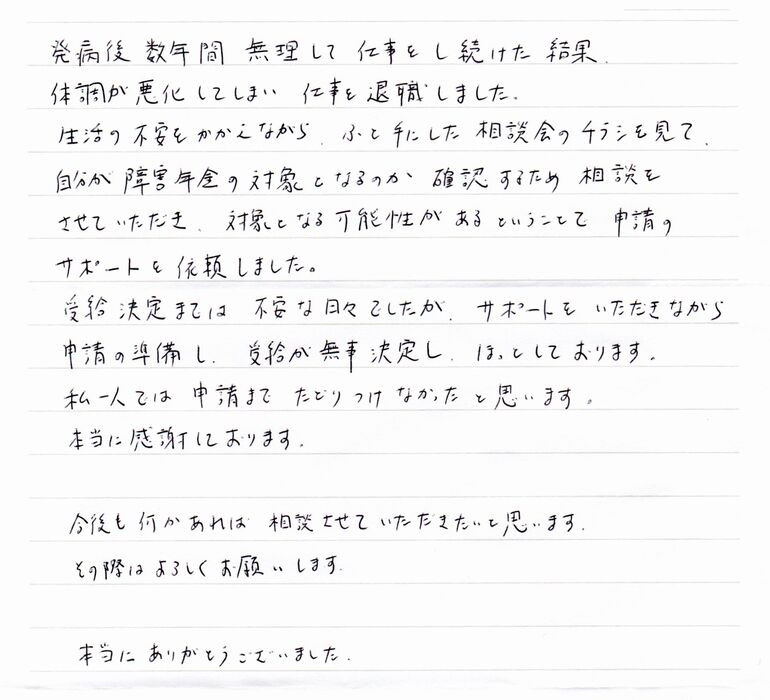 発病後 数年間 無理して 仕事をし続けた 結果、
体調が悪化してしまい 仕事を退職しました。
生活の不安をかかえながら、ふと手にした 相談会のチラシを見て、
自分が 障害年金の対象となるのか 確認するため 相談を
させていただき、対象となる可能性があるということで 申請の
サポートを依頼しました。
受給決定までは 不安な日々でしたが、サポートをいただきながら
申請の準備し、受給が無事決定し、ほっとしております。
私一人では 申請まで たどりつけなかったと思います。
本当に感謝しております。
今後も何かあれば 相談させていただきたいと思います。
その際はよろしくお願いします。
本当にありがとうございました。